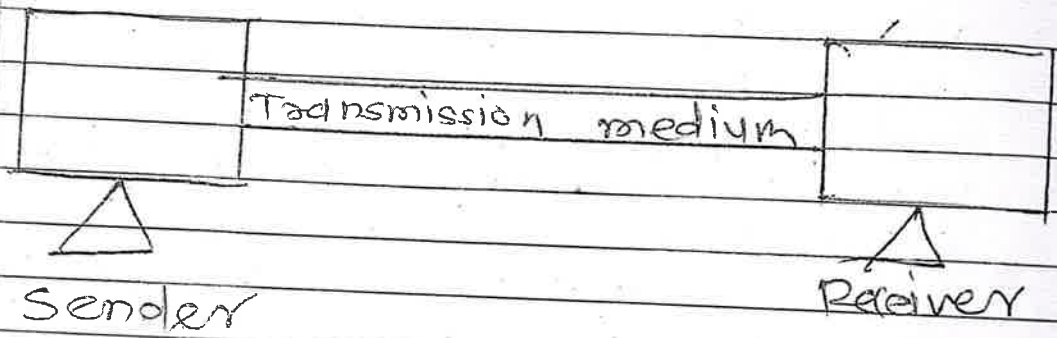 Transmission medium
Sender
Receiver